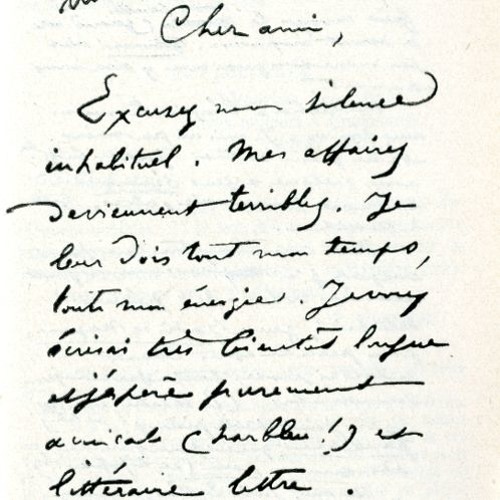 Cher ami,
Excusez mon silence
inhabituel. Mes affaires
deviennent terribles. Je
leur dois tout mon temps,
toute mon énergie. Je vous
écrirai très bientôt longue
et j'espère purement
amicale (parbleu!) et
littéraire lettre.